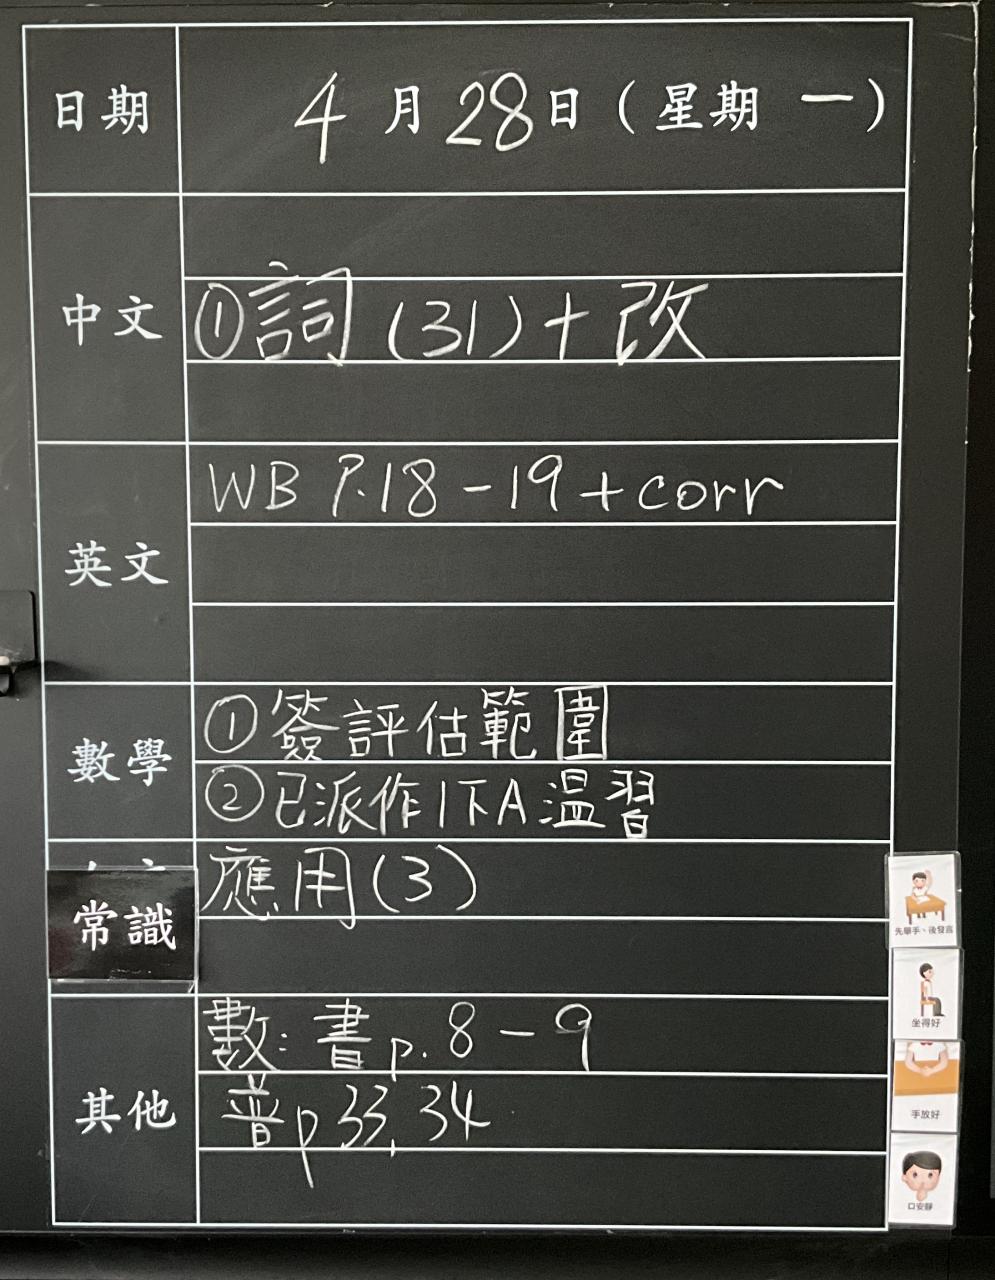 日期 4月28日(星期一)
中文
①詞(31)+改
英文
WB P.18-19+corr
數學
①簽評估範圍
②已派作1下A温習
常識
應用(3)
其他
數:書p.8-9
普p33,34
先舉手、後發言
坐得好
手放好
口安靜